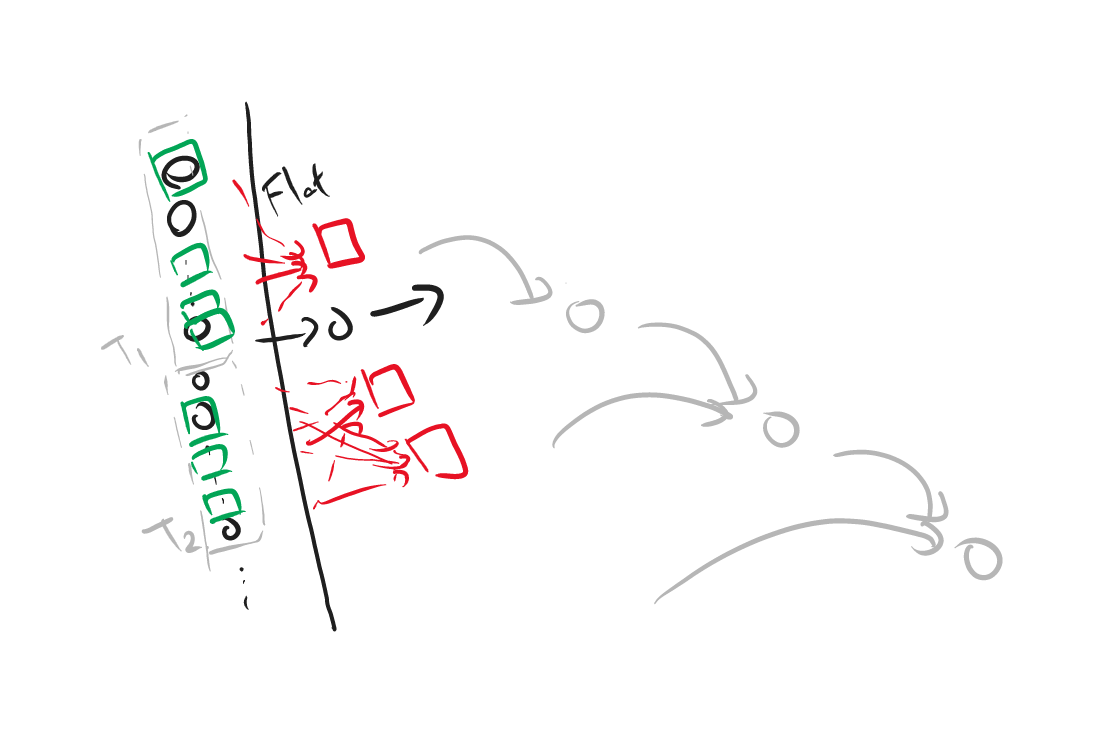 Flat
T1
T2